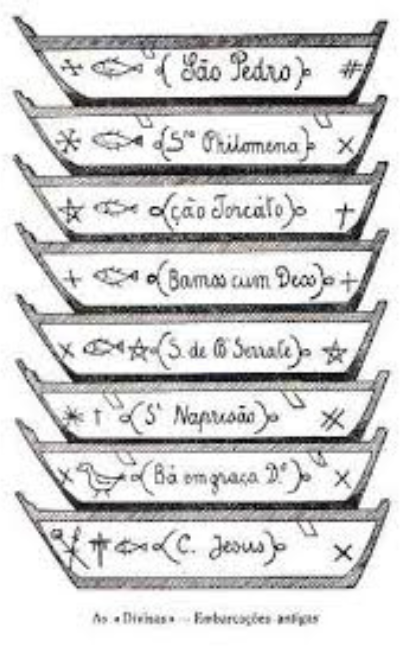 São Pedro
Sta Philomena
ção Torcáto
Bamos cum Deos
S. de B Serrate
S' Napresão
Bá em graça D.ª
C. Jesus
As «Divisas» — Embarcações antigas